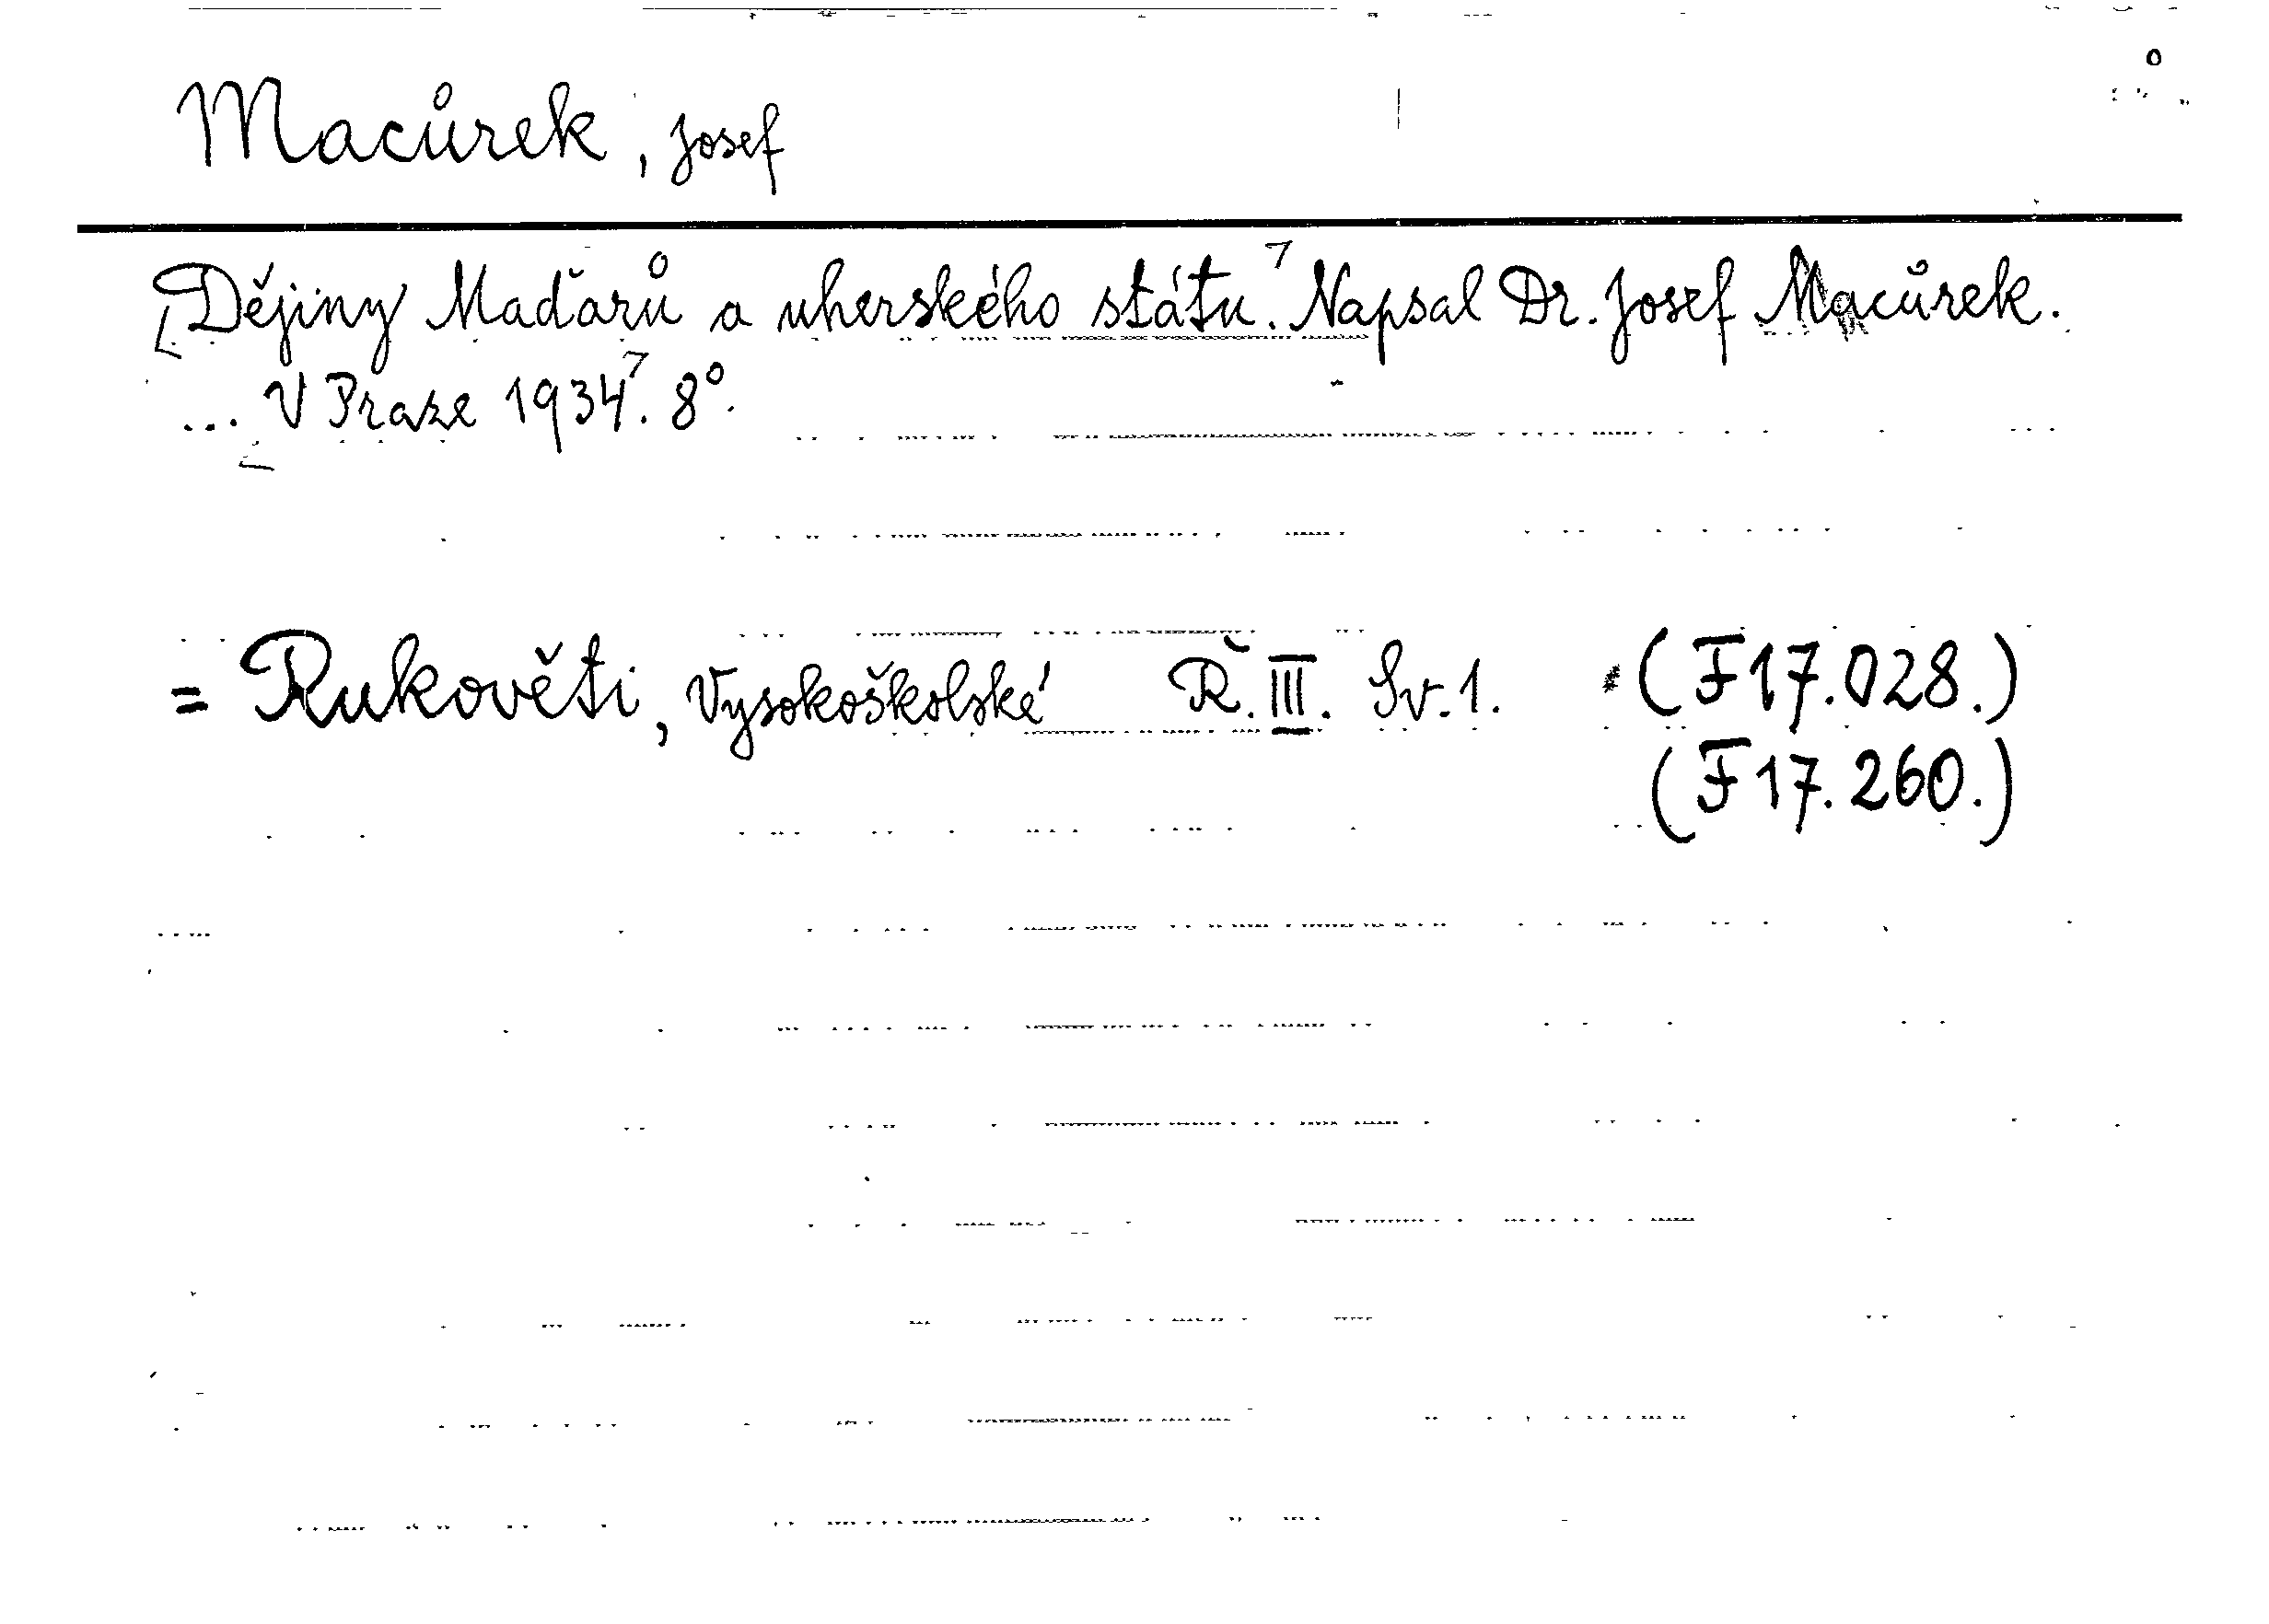 Macůrek, Josef
Dějiny Maďarů a uherského státu. Napsal Dr. Josef Macůrek.
... V Praze 1934. 8°.
= Rukověti, Vysokoškolské Ř. III. Sv. 1. (F17.028.)
(F17.260.)